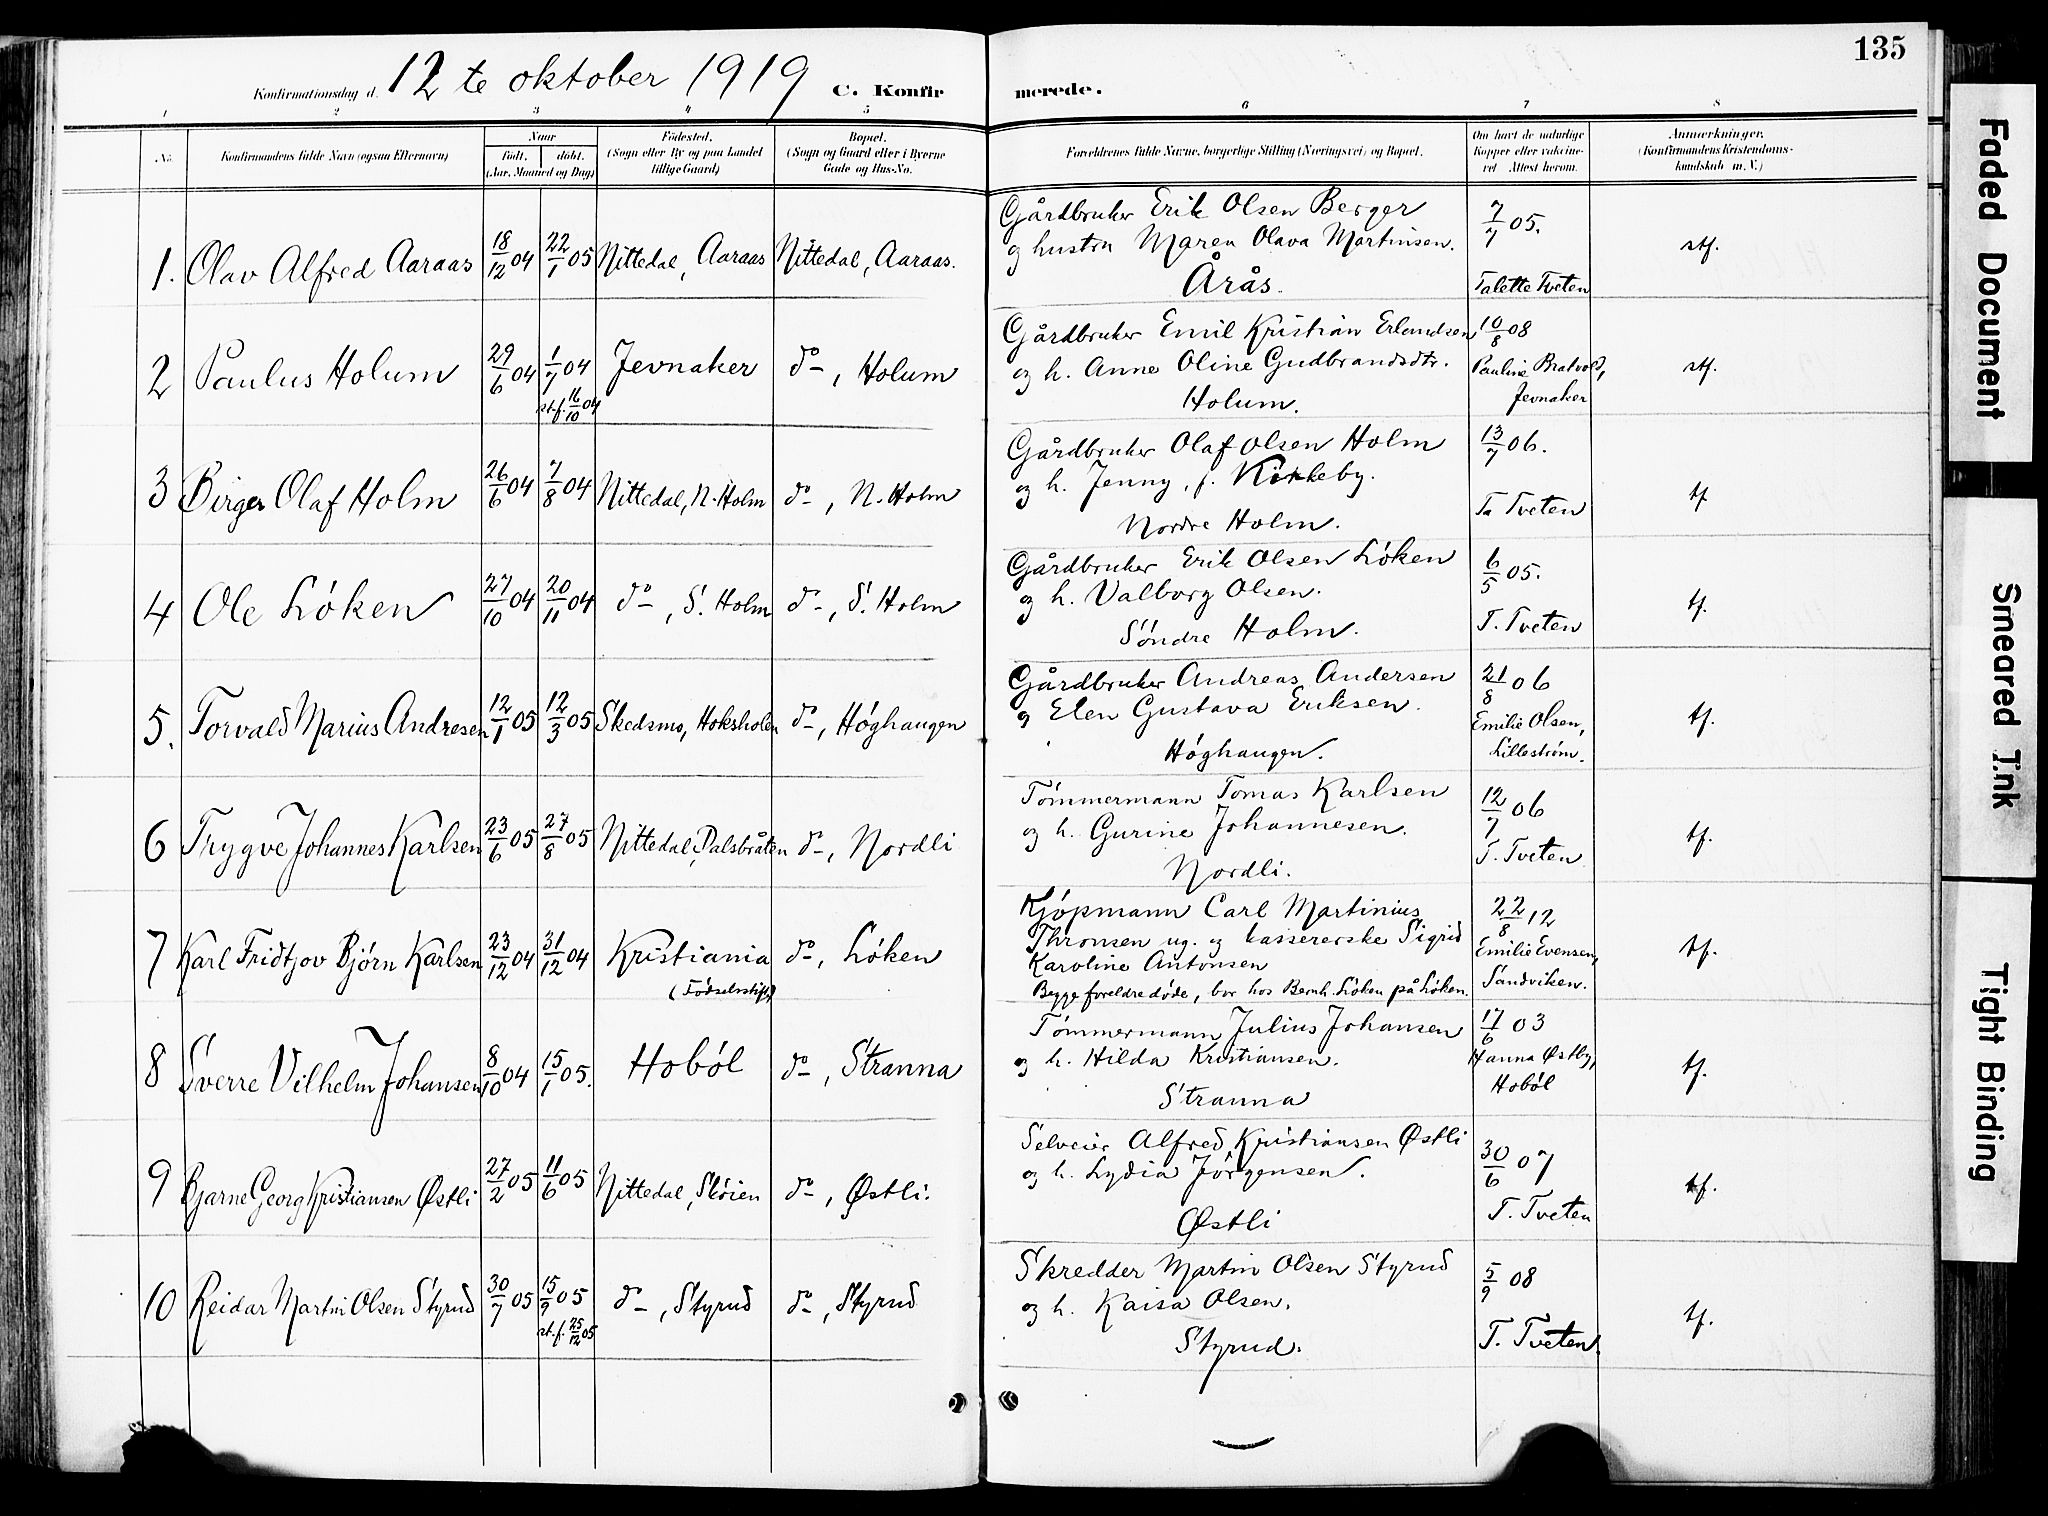 135
Konfirmationsdag d. 12te oktober 1919 C. Konfirmerede.
1 2 3 4 5 6 7 8
No. Konfirmandens fulde Navn (ogsaa Efternavn) Naar født. døbt. (Aar, Maaned og Dag) Fødested. (Sogn eller By og paa Landet tillige Gaard) Bopæl. (Sogn og Gaard eller i Byerne Gade og Hus-No. Forældrenes fulde Navne, borgerlige Stilling (Næringsvei) og Bopæl. Om havt de naturlige Kopper eller vaccineret Attest herom. Anmærkninger. (Konfirmandens Kristendomskundskab m. V.)
1. Olav Alfred Aaraas 18/12 04 22/1 05 Nittedal, Aaraas Nittedal, Aaraas.
Gårdbruker Erik Olsen Berger
og hustru Maren Olava Martinsen.
Årås.
7/7 05.
Talette Tveten
stf.
2 Paulus Holum 29/6 04 1/7 04 st.f. 16/10 04 Jevnaker do, Holum
Gårdbruker Emil Kristian Erlandsen
og h. Anne Oline Gudbrandsdtr.
Holum.
10/8 08
Pauline Bratvold,
Jevnaker
stf.
3 Birger Olaf Holm 26/6 04 7/8 04 Nittedal, N. Holm do, N. Holm
Gårdbruker Olaf Olsen Holm
og h. Jenny, f. Kirkeby.
Nordre Holm.
13/7 06.
Ta Tveten
tf
4 Ole Løken 27/10 04 20/11 04 do, S. Holm do, S. Holm
Gårdbruker Erik Olsen Løken
og h. Valborg Olsen.
Søndre Holm.
6/5 05.
T. Tveten
tf.
5. Torvald Marius Andresen 12/1 05 12/3 05 Skedsmo, Hoksholen do, Høghaugen
Gårdbruker Andreas Andersen
og Elen Gustava Eriksen.
Høghaugen.
21/8 06
Emilie Olsen,
Lillestrøm.
tf.
6 Trygve Johannes Karlsen 23/6 05 27/8 05 Nittedal, Palsbråten do, Nordli
Tømmermann Tomas Karlsen
og h. Gurine Johannesen.
Nordli.
12/7 06
T. Tveten
tf.
7 Karl Fridtjov Bjørn Karlsen 23/12 04 31/12 04 Kristiania (Fødselsstift) do, Løken
Kjøpmann Carl Martinius
Thronsen ug. og kassererske Sigrid
Karoline Antonsen
Begge foreldre døde, bor hos Bernh. Løken på Løken.
22/8 12
Emilie Evensen,
Sandviken.
tf.
8 Sverre Vilhelm Johansen 8/10 04 15/1 05. Hobøl do, Stranna
Tømmermann Julius Johansen
og h. Hilda Kristiansen.
Stranna
17/6 03
Hanna Østby,
Hobøl
tf.
9 Bjarne Georg Kristiansen Østli 27/2 05 11/6 05 Nittedal, Skøien do, Østli.
Selveier Alfred Kristiansen Østli
og h. Lydia Jørgensen.
Østli
30/6 07
T. Tveten
tf.
10 Reidar Martin Olsen Styrud 30/7 05 15/9 05 st.f. 25/12 05 do, Styrud do, Styrud
Skredder Martin Olsen Styrud
og h. Kaisa Olsen.
Styrud.
5/9 08
T. Tveten.
tf.
Faded Document
Smeared Ink
Tight Binding